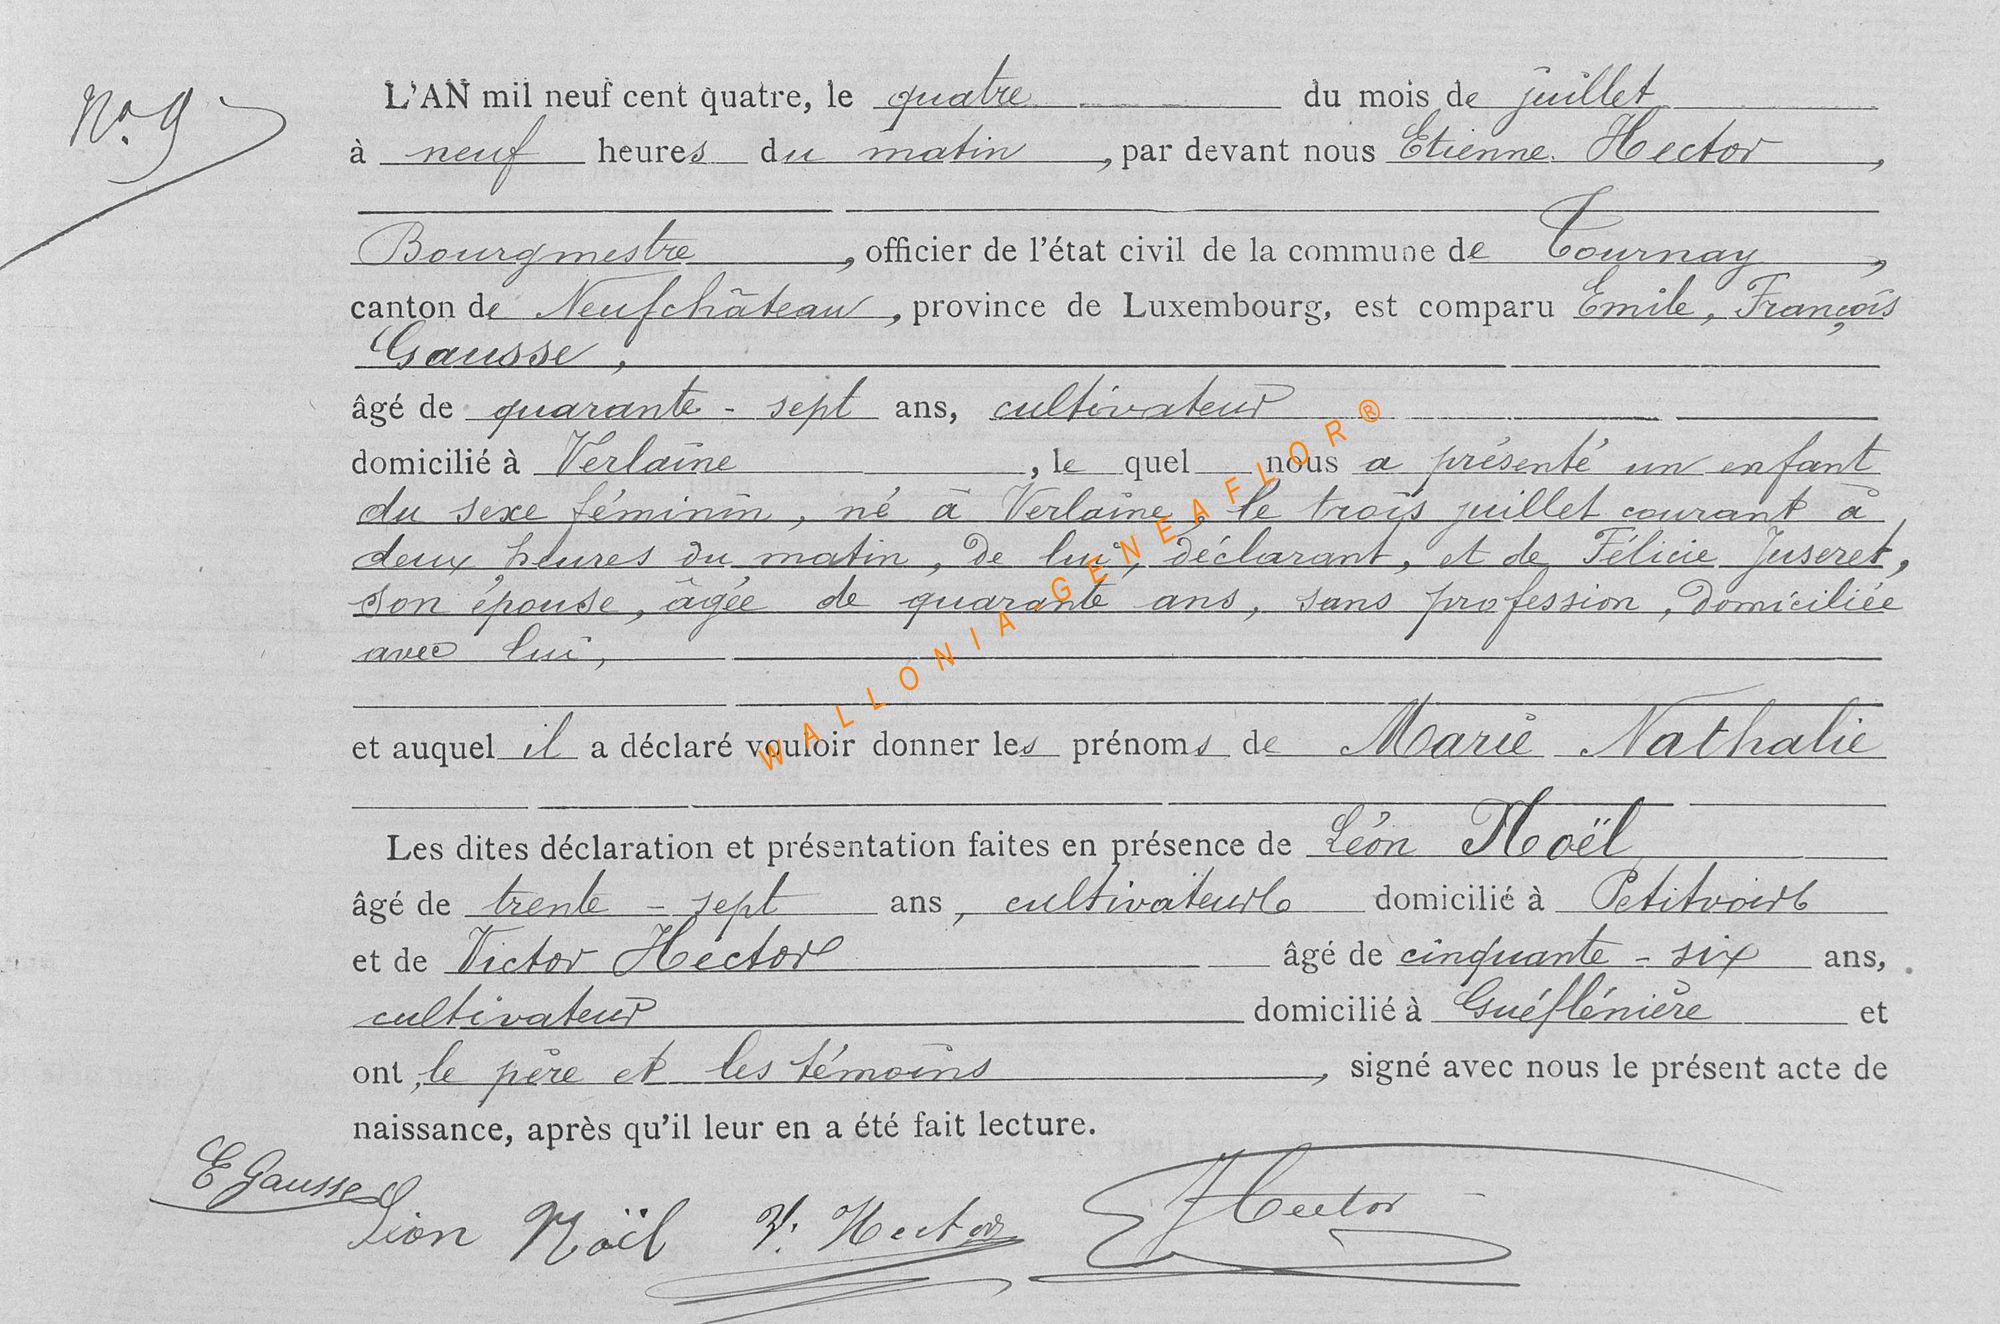 No. 9
L'AN mil neuf cent quatre, le quatre du mois de juillet
à neuf heures du matin, par devant nous Etienne. Hector,
Bourgmestre, officier de l'état civil de la commune de Tournay,
canton de Neufchâteau, province de Luxembourg, est comparu Emile, François
Gausse,
âgé de quarante-sept ans, cultivateur
domicilié à Verlaine, le quel nous a présenté un enfant
du sexe féminin, né à Verlaine, le trois juillet courant à
deux heures du matin, de lui, déclarant, et de Félicie Juseret,
son épouse, âgée de quarante ans, sans profession, domiciliée
avec lui,
et auquel il a déclaré vouloir donner les prénoms de Marie Nathalie
Les dites déclaration et présentation faites en présence de Léon Noël
âgé de trente-sept ans, cultivateur domicilié à Petitvoir
et de Victor Hector âgé de cinquante-six ans,
cultivateur domicilié à Gué et
ont, le père et les témoins, signé avec nous le présent acte de
naissance, après qu'il leur en a été fait lecture.
E Gausse
Léon Noël V. Hector Hector
WALLONIA GENEAFLOR®